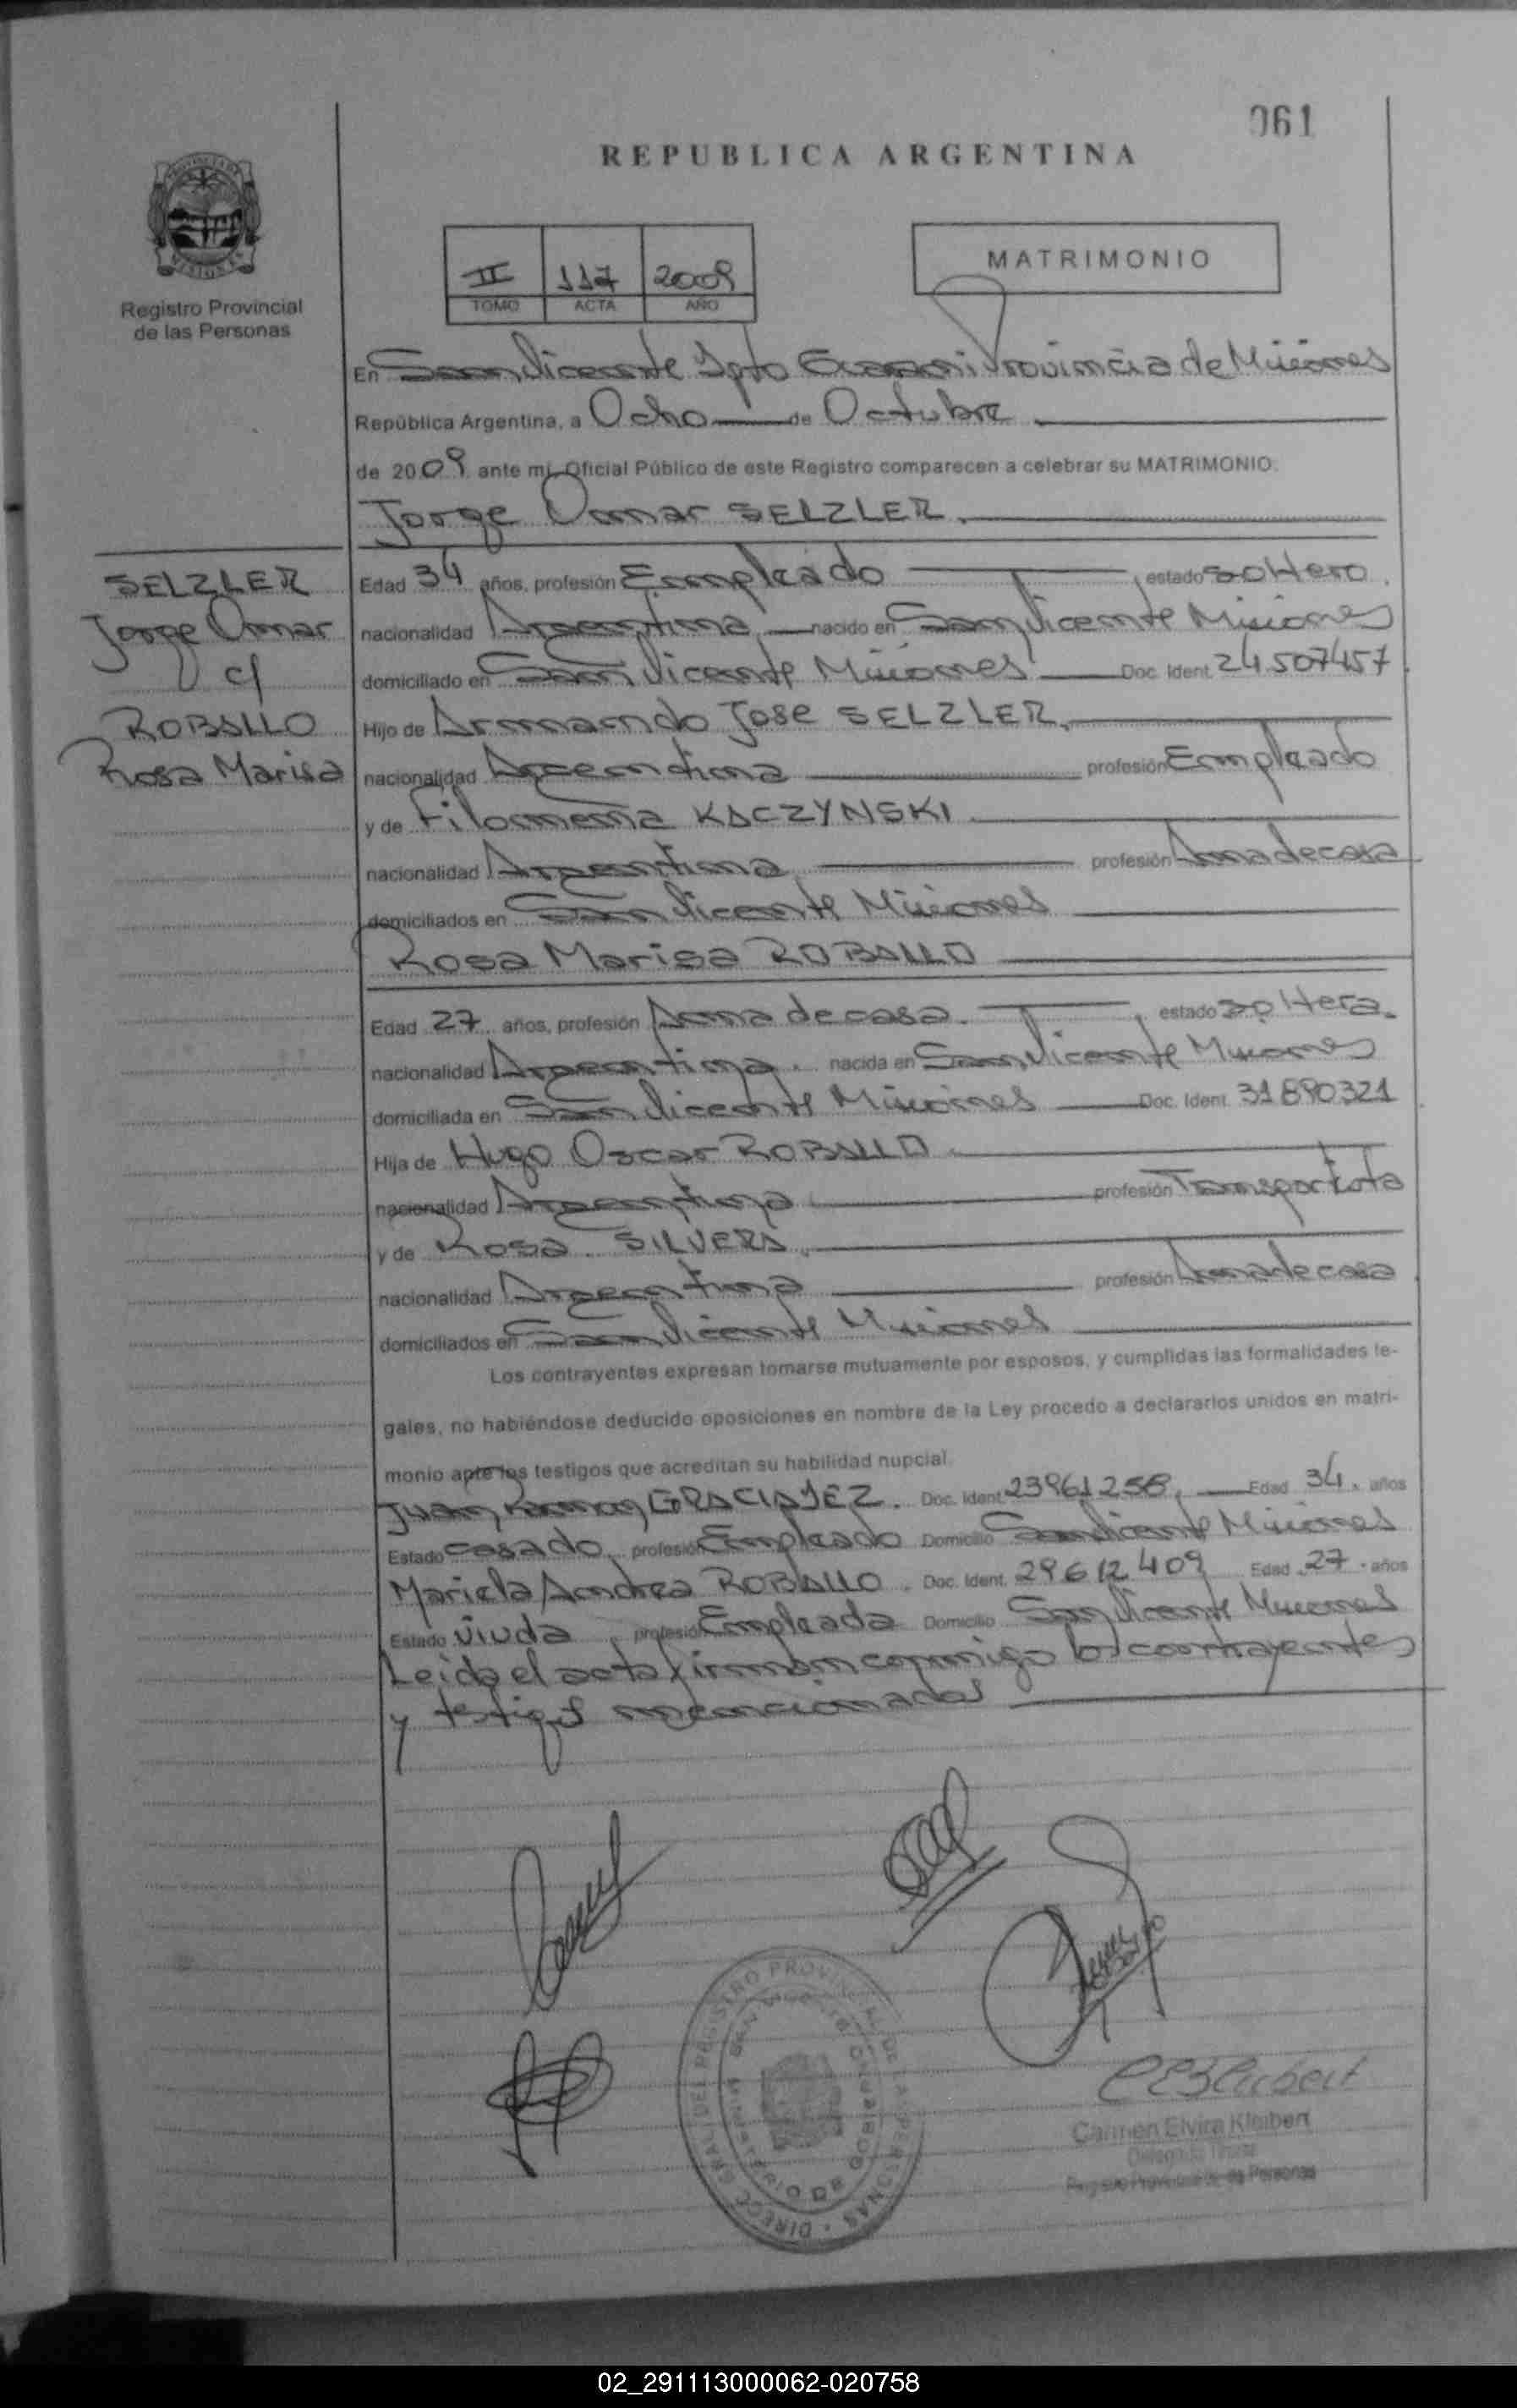 061
REPUBLICA ARGENTINA
MATRIMONIO
II 117 2009
TOMO ACTA AÑO
Registro Provincial
de las Personas
En San Vicente Dpto Guarani Provincia de Misiones
República Argentina, a Ocho de Octubre
de 2009 ante mi, Oficial Público de este Registro comparecen a celebrar su MATRIMONIO.
Jorge Omar SELZLER.
SELZLER
Jorge Omar
c/
ROBALLO
Rosa Marisa
Edad 34 años, profesión Empleado, estado soltero.
nacionalidad Argentina, nacido en San Vicente Misiones
domiciliado en San Vicente Misiones Doc. Ident. 24.507457.
Hijo de Armando Jose SELZLER,
nacionalidad Argentina profesión Empleado
y de Filomena KACZYNSKI
nacionalidad Argentina, profesión Ama de casa
domiciliados en San Vicente Misiones
Rosa Marisa ROBALLO
Edad 27 años, profesión Ama de casa. , estado soltera.
nacionalidad Argentina. nacida en San Vicente Misiones
domiciliada en San Vicente Misiones Doc. Ident. 31890321
Hija de Hugo Oscar ROBALLO.
nacionalidad Argentina profesión Transportista
y de Rosa SILVERA,
nacionalidad Argentina profesión Ama de casa
domiciliados en San Vicente Misiones
Los contrayentes expresan tomarse mutuamente por esposos, y cumplidas las formalidades le-
gales, no habiéndose deducido oposiciones en nombre de la Ley procedo a declararlos unidos en matri-
monio ante los testigos que acreditan su habilidad nupcial.
Juan Ramon Doc. Ident. 23961258, Edad 34. años
Estado casado, profesión Empleado Domicilio San Vicente Misiones
Mariela Andrea ROBALLO. Doc. Ident. 29612409 Edad 27. años
Estado viuda, profesión Empleada Domicilio San Vicente Misiones
Leida el acta firman conmigo los contrayentes
y testigos mencionados
DIRECC. GRAL. DEL REGISTRO PROVINCIAL DE LAS PERSONAS
MINISTERIO DE GOBIERNO
Carmen Elvira Kleibert
Registro Provincial de las Personas
02_291113000062-020758